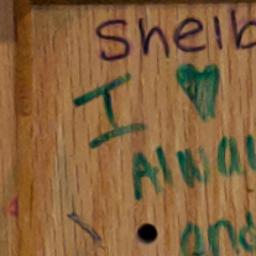 Shelb
I ♥
Alwa
and